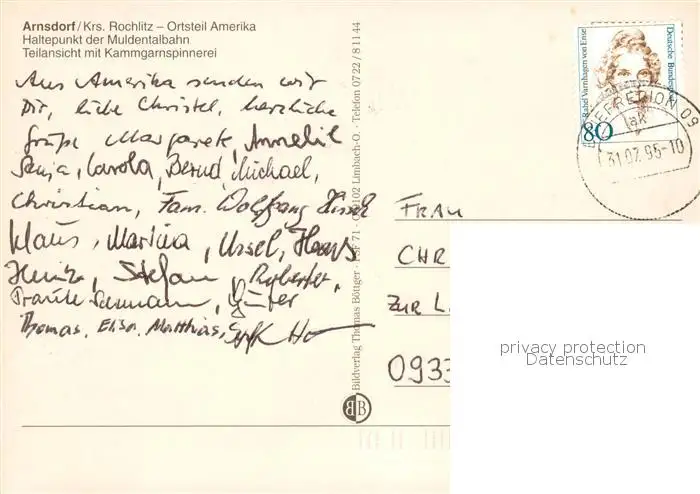 Arnsdorf / Krs. Rochlitz – Ortsteil Amerika
Haltepunkt der Muldentalbahn
Teilansicht mit Kammgarnspinnerei
Aus Amerika senden wir
Dir, liebe Christel, herzliche
Grüße Margarete, Annelie
Sonja, Carola, Bernd, Michael,
Christian, Fam. Wolfgang
Klaus, Martina, Ursel, Hans
Heinz, Stefan,
Günter
Thomas, Elisa, Matthias,
Bildverlag Thomas Böttger · PSF 71 · 09102 Limbach-O. · Telefon 0722 / 8 11 44
B B
Rahel Varnhagen von Ense
Deutsche Bundespost
80
BRIEFREGION 09
31.07.95-10
FRAU
CHR
ZUR L
093
privacy protection
Datenschutz